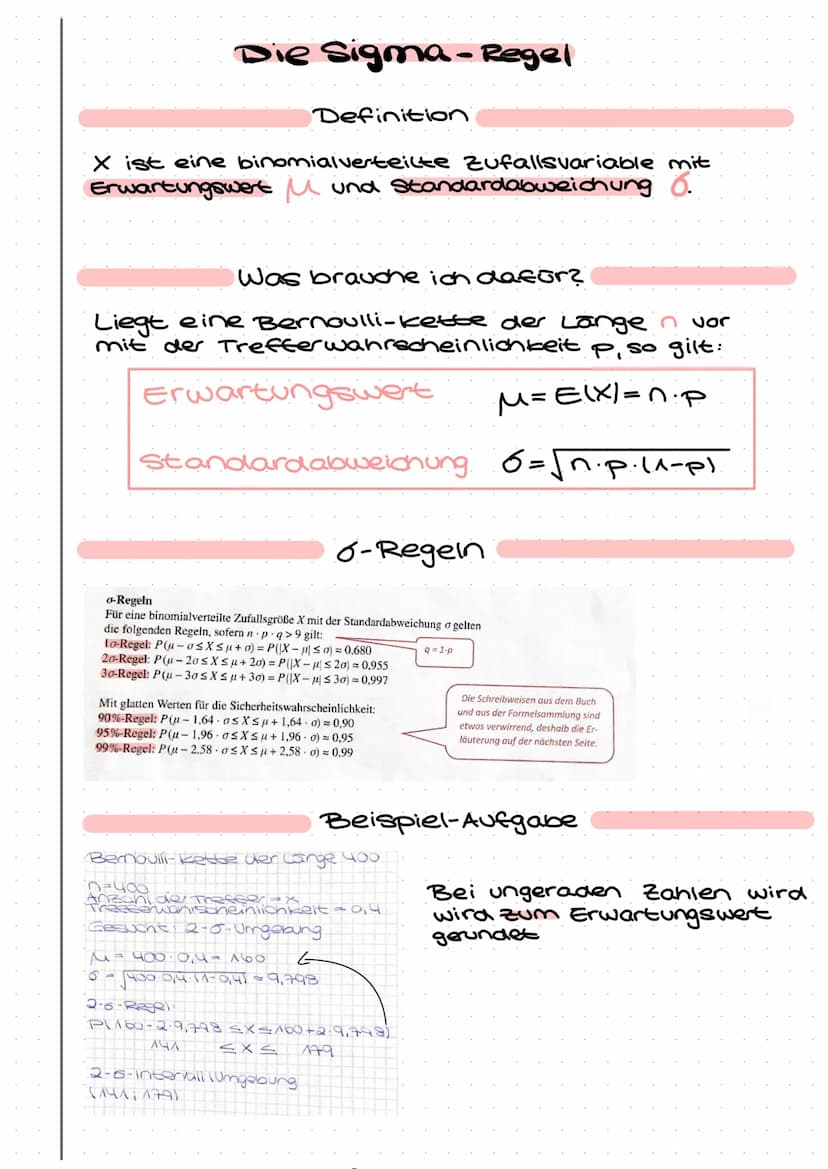 Die Sigma-Regel
Definition
X ist eine binomialverteilte Zufallsvariable mit
Erwartungswert μ und Standardabweichung σ.
Was brauche ich dafür?
Liegt eine Bernoulli-Kette der Länge n vor
mit der Trefferwahrscheinlichkeit p, so gilt:
Erwartungswert μ = E(X) = n·p
Standardabweichung σ = √n·p·(1-p)
σ-Regeln
σ-Regeln
Für eine binomialverteilte Zufallsgröße X mit der Standardabweichung σ gelten
die folgenden Regeln, sofern n · p · q > 9 gilt:
1σ-Regel: P(μ − σ ≤ X ≤ μ + σ) = P(|X − μ| ≤ σ) ≈ 0,680
q = 1-p
2σ-Regel: P(μ − 2σ ≤ X ≤ μ + 2σ) = P(|X − μ| ≤ 2σ) ≈ 0,955
3σ-Regel: P(μ − 3σ ≤ X ≤ μ + 3σ) = P(|X − μ| ≤ 3σ) ≈ 0,997
Mit glatten Werten für die Sicherheitswahrscheinlichkeit:
90%-Regel: P(μ − 1,64 · σ ≤ X ≤ μ + 1,64 · σ) ≈ 0,90
95%-Regel: P(μ − 1,96 · σ ≤ X ≤ μ + 1,96 · σ) ≈ 0,95
99%-Regel: P(μ − 2,58 · σ ≤ X ≤ μ + 2,58 · σ) ≈ 0,99
Die Schreibweisen aus dem Buch
und aus der Formelsammlung sind
etwas verwirrend, deshalb die Er-
läuterung auf der nächsten Seite.
Beispiel-Aufgabe
Bernoulli-Kette der Länge 400
n=400
Anzahl der Treffer = x
Trefferwahrscheinlichkeit = 0,4
Gesucht: 2-σ-Umgebung
μ = 400·0,4 = 160
σ = √400·0,4·(1-0,4) = 9,798
2-σ-Regel:
P(160-2·9,798 ≤ X ≤ 160+2·9,798)
141 ≤ X ≤ 179
2-σ-Intervall (Umgebung
(141; 179)
Bei ungeraden Zahlen wird
wird zum Erwartungswert
gerundet